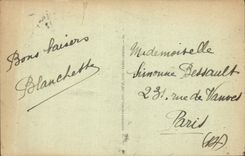 Bons baisers
Blanchette
Mademoiselle
Simonne Dessault
23, rue de Vanves
Paris
(14)